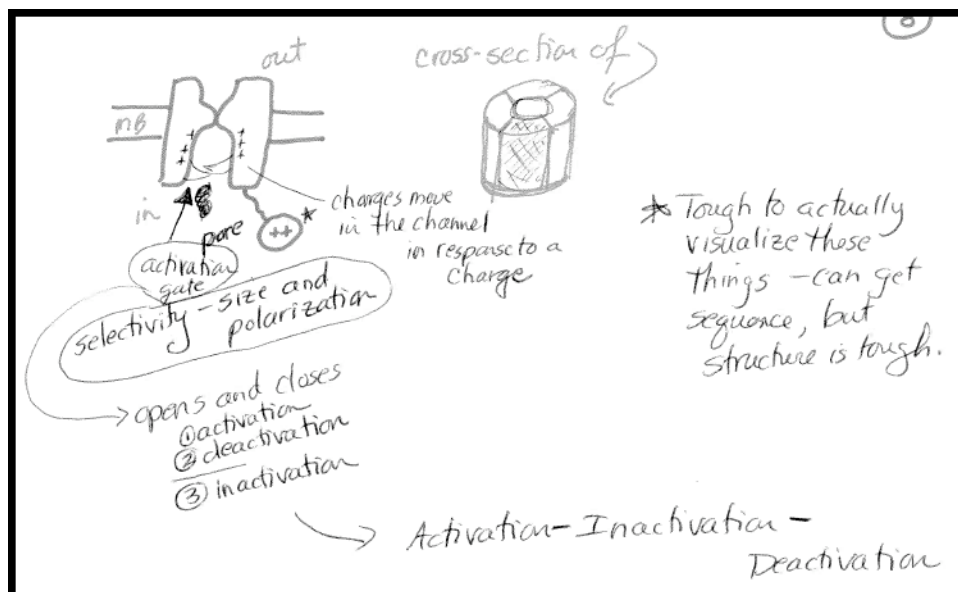 8
out
cross-section of
MB
in
pore
++
*
charges move
in the channel
in response to a
charge
activation
gate
selectivity - size and
polarization
* Tough to actually
visualize these
things - can get
sequence, but
structure is tough.
opens and closes
① activation
② deactivation
③ inactivation
Activation - Inactivation -
Deactivation